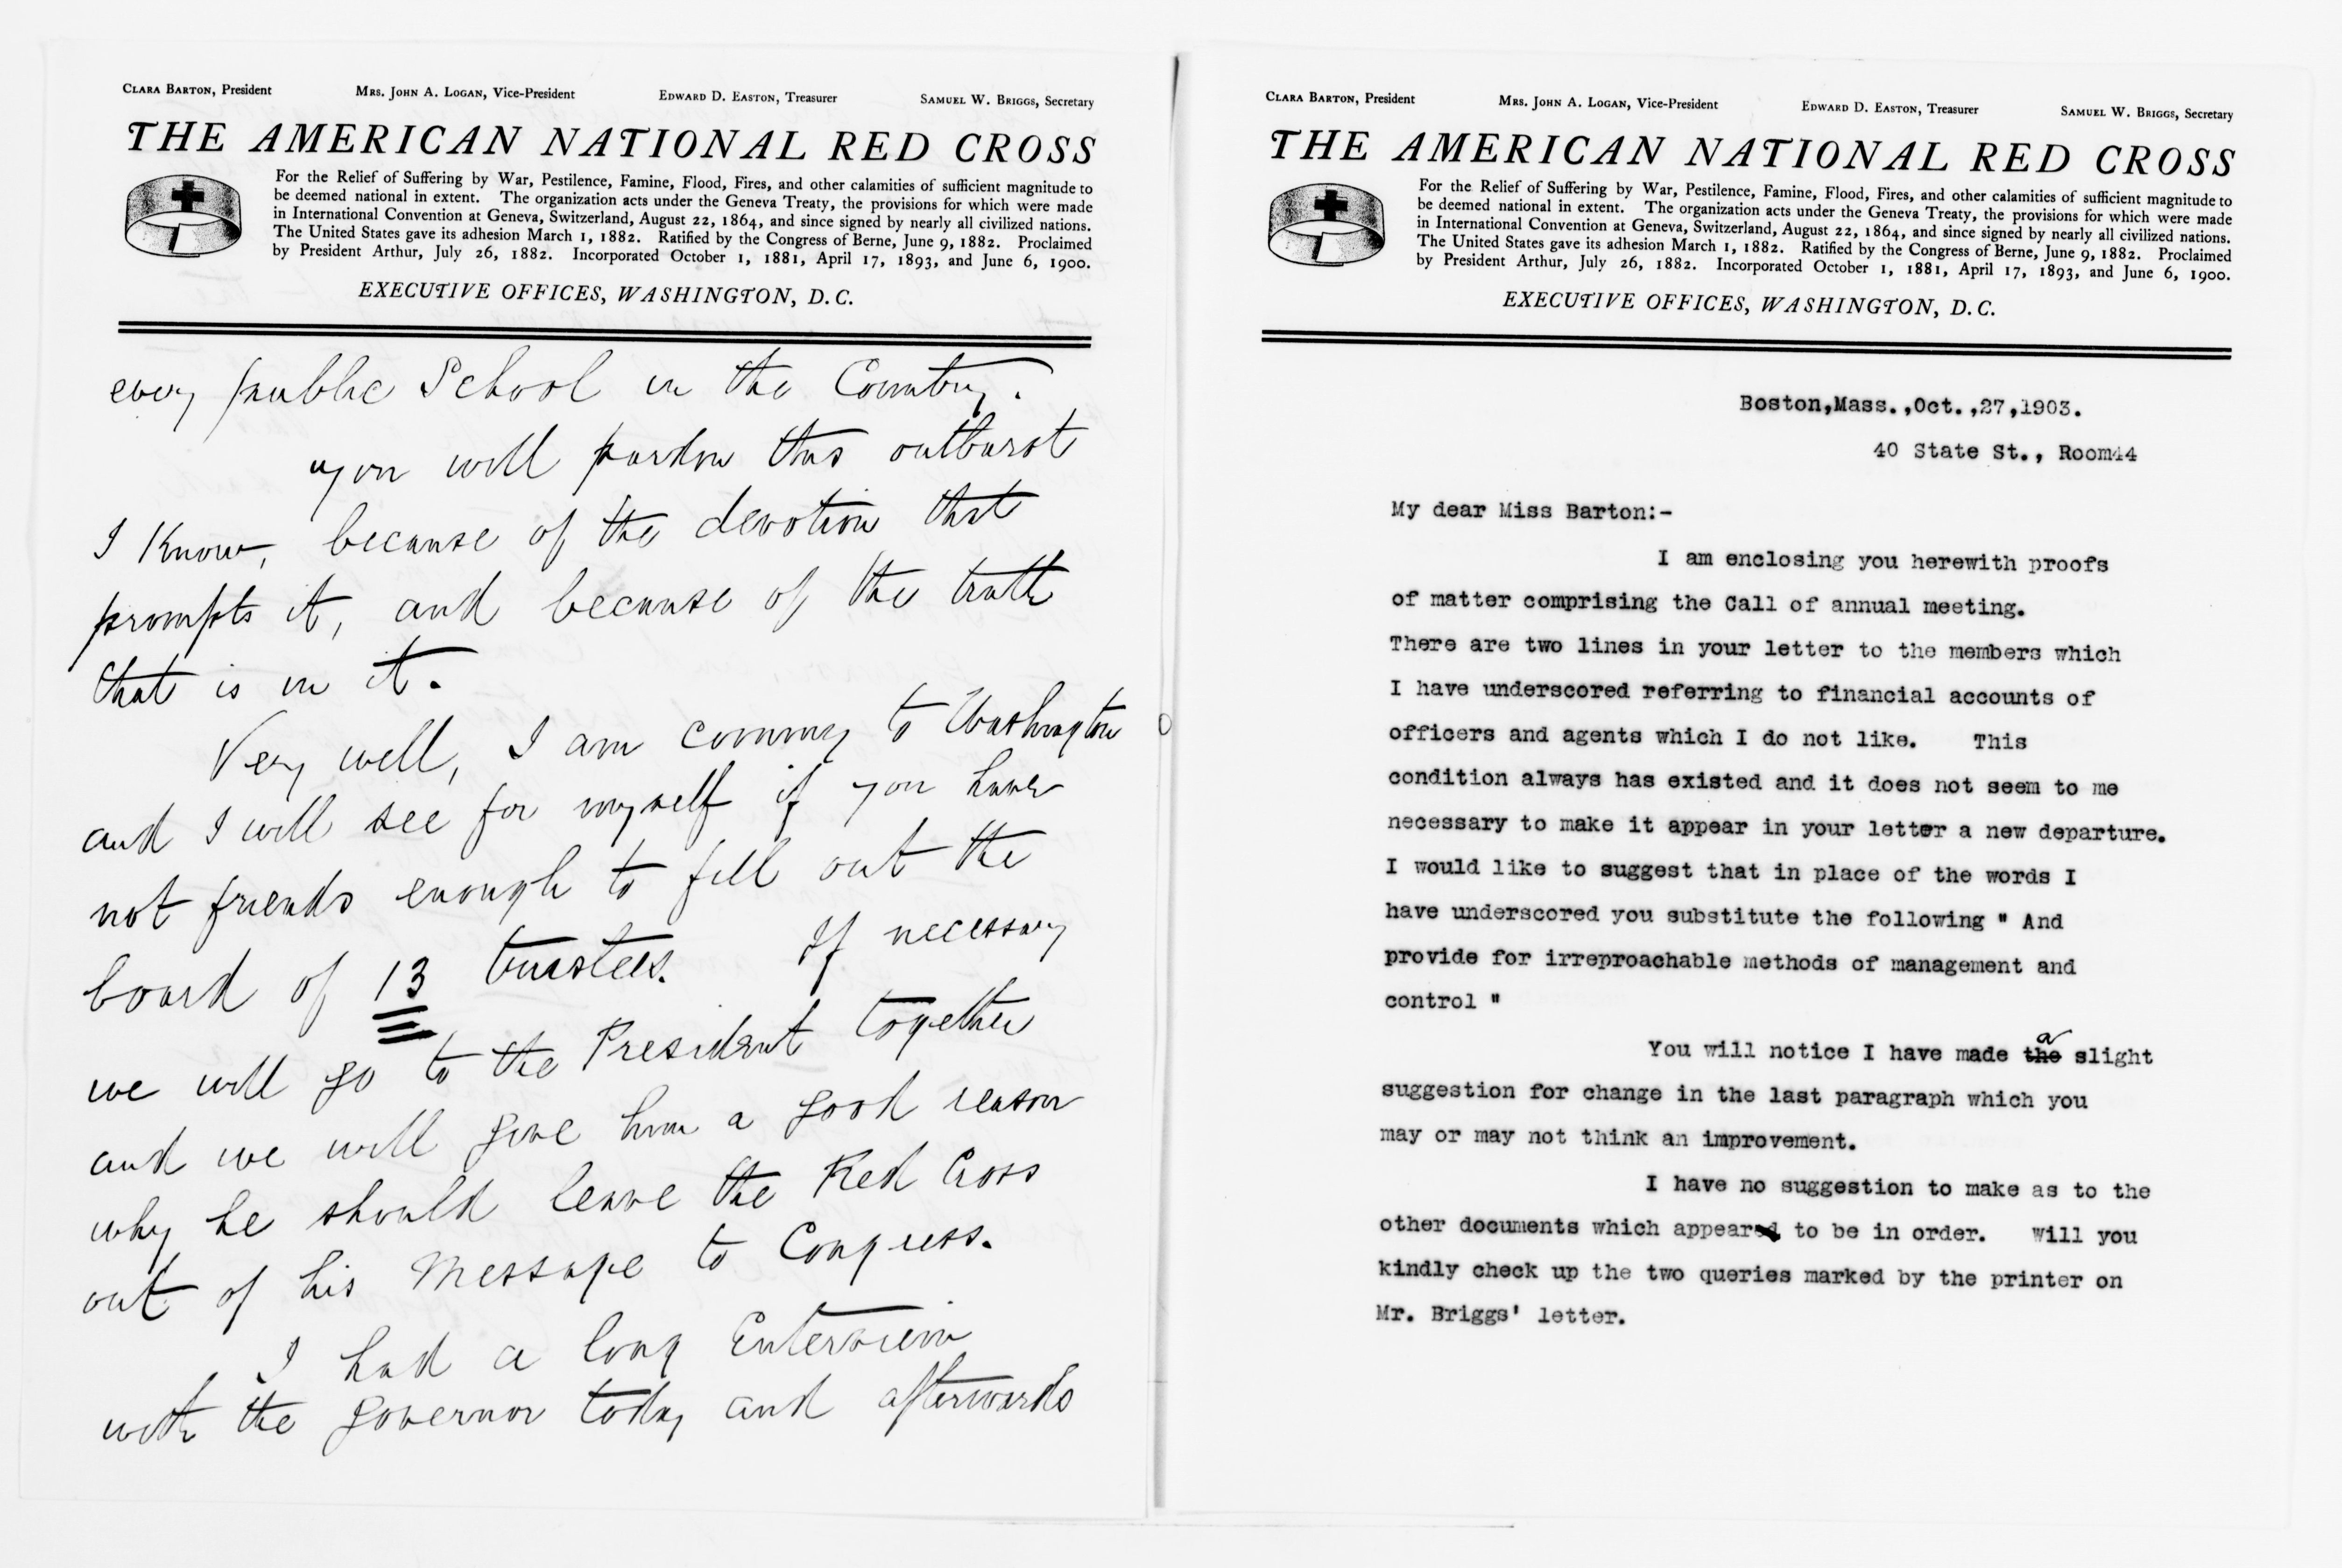 CLARA BARTON, President MRS. JOHN A. LOGAN, Vice-President EDWARD D. EASTON, Treasurer SAMUEL W. BRIGGS, Secretary
THE AMERICAN NATIONAL RED CROSS
For the Relief of Suffering by War, Pestilence, Famine, Flood, Fires, and other calamities of sufficient magnitude to
be deemed national in extent. The organization acts under the Geneva Treaty, the provisions for which were made
in International Convention at Geneva, Switzerland, August 22, 1864, and since signed by nearly all civilized nations.
The United States gave its adhesion March 1, 1882. Ratified by the Congress of Berne, June 9, 1882. Proclaimed
by President Arthur, July 26, 1882. Incorporated October 1, 1881, April 17, 1893, and June 6, 1900.
EXECUTIVE OFFICES, WASHINGTON, D. C.
every public School in the Country.
you will pardon this outburst
I Know, because of the devotion that
prompts it, and because of the truth
that is in it.
Very well, I am coming to Washington
and I will see for myself if you have
not friends enough to fill out the
board of 13 trustees. If necessary
we will go to the President together
and we will give him a good reason
why he should leave the Red Cross
out of his Message to Congress.
I had a long Enterview
with the governor today and afterwards
CLARA BARTON, President MRS. JOHN A. LOGAN, Vice-President EDWARD D. EASTON, Treasurer SAMUEL W. BRIGGS, Secretary
THE AMERICAN NATIONAL RED CROSS
For the Relief of Suffering by War, Pestilence, Famine, Flood, Fires, and other calamities of sufficient magnitude to
be deemed national in extent. The organization acts under the Geneva Treaty, the provisions for which were made
in International Convention at Geneva, Switzerland, August 22, 1864, and since signed by nearly all civilized nations.
The United States gave its adhesion March 1, 1882. Ratified by the Congress of Berne, June 9, 1882. Proclaimed
by President Arthur, July 26, 1882. Incorporated October 1, 1881, April 17, 1893, and June 6, 1900.
EXECUTIVE OFFICES, WASHINGTON, D. C.
Boston,Mass.,Oct.,27,1903.
40 State St., Room44
My dear Miss Barton:-
I am enclosing you herewith proofs
of matter comprising the Call of annual meeting.
There are two lines in your letter to the members which
I have underscored referring to financial accounts of
officers and agents which I do not like. This
condition always has existed and it does not seem to me
necessary to make it appear in your letter a new departure.
I would like to suggest that in place of the words I
have underscored you substitute the following " And
provide for irreproachable methods of management and
control "
a
You will notice I have made the slight
suggestion for change in the last paragraph which you
may or may not think an improvement.
I have no suggestion to make as to the
other documents which appeared to be in order. Will you
kindly check up the two queries marked by the printer on
Mr. Briggs' letter.